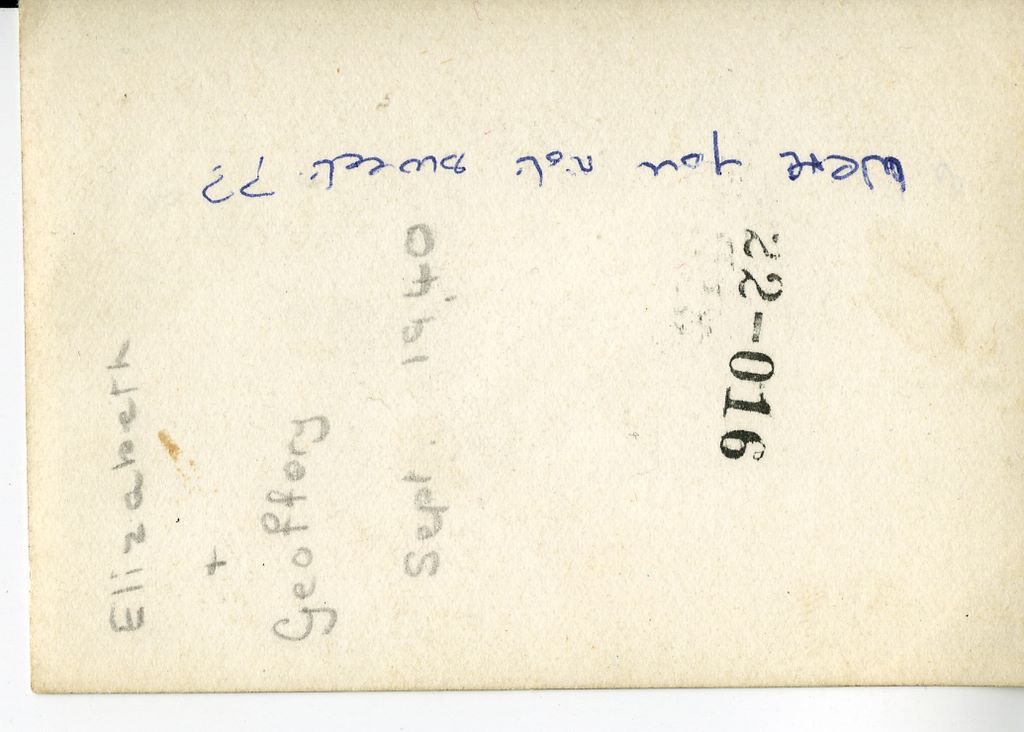 Were you not sweet??
22-016
Elizabeth
+
Geoffery
Sept. 1940